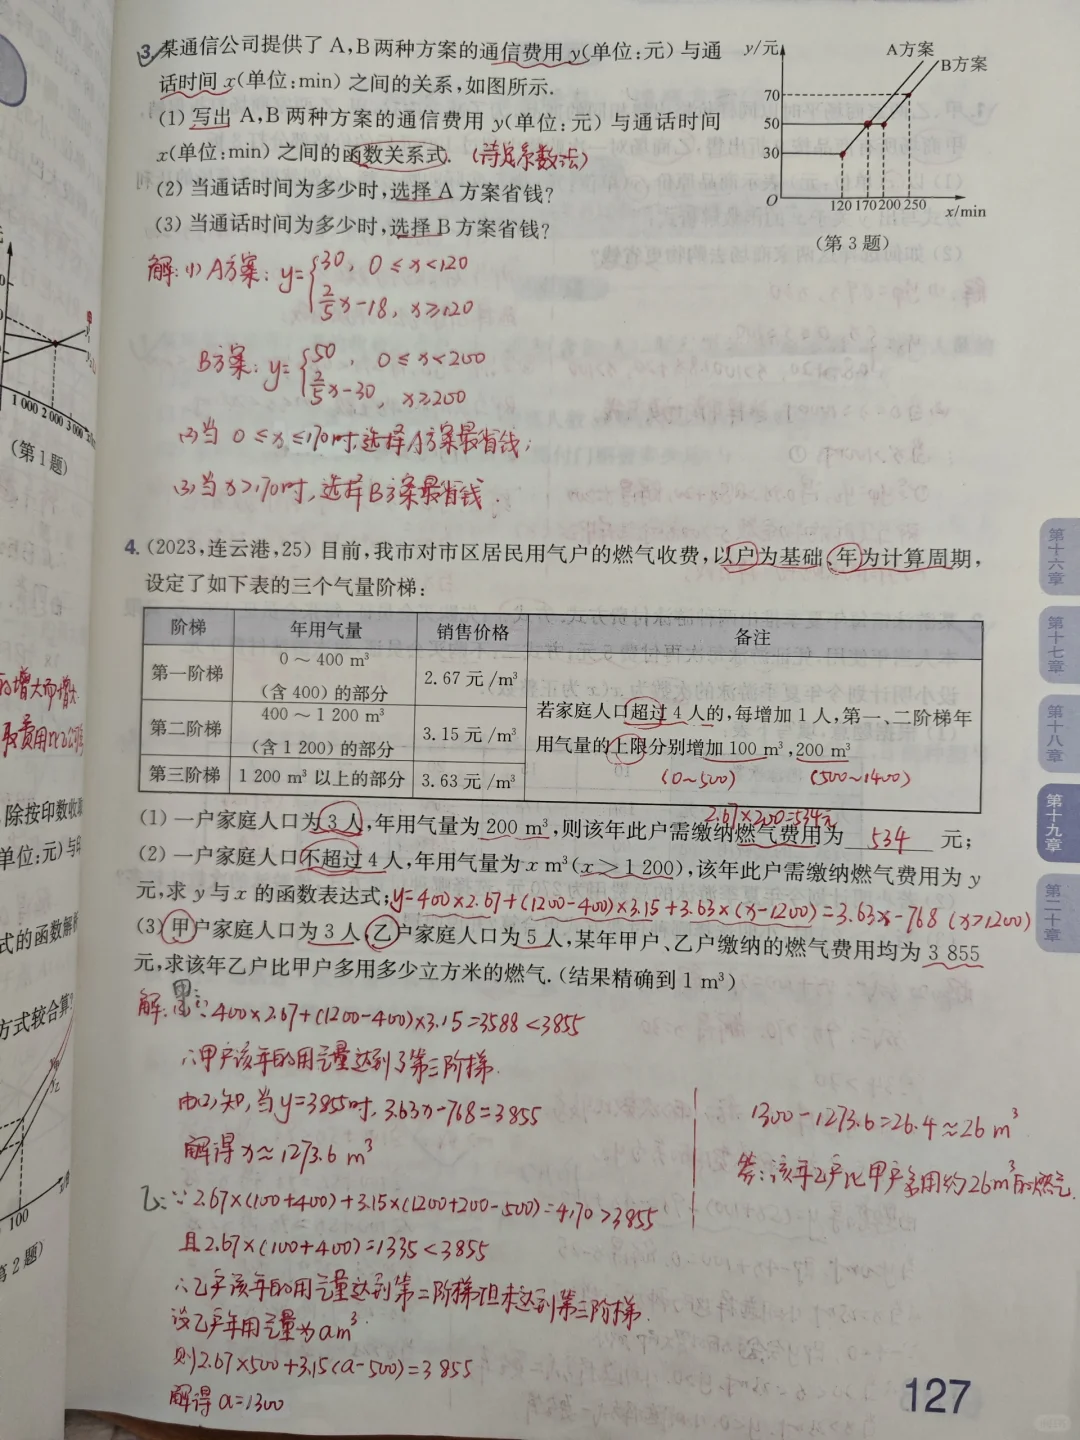 3. 某通信公司提供了 A,B两种方案的通信费用 y(单位:元) 与通
话时间 x(单位:min) 之间的关系,如图所示.
(1) 写出 A,B 两种方案的通信费用 y(单位:元) 与通话时间
x(单位:min) 之间的函数关系式. (待定系数法)
(2) 当通话时间为多少时,选择 A 方案省钱?
(3) 当通话时间为多少时,选择 B 方案省钱?
y/元
A方案
B方案
70
50
30
O
120 170 200 250
x/min
(第 3 题)
解:(1) A方案: y={30, 0≤x<120
2/5x-18, x≥120
B方案: y={50, 0≤x<200
2/5x-30, x≥200
(2)当 0≤x≤170时,选择A方案最省钱;
(3)当x>170时,选择B方案最省钱.
4. (2023,连云港,25) 目前,我市对市区居民用气户的燃气收费,以户为基础、年为计算周期,
设定了如下表的三个气量阶梯:
阶梯 年用气量 销售价格 备注
第一阶梯 0～400 m³ (含 400) 的部分 2.67 元/m³
第二阶梯 400～1 200 m³ (含 1 200) 的部分 3.15 元/m³
第三阶梯 1 200 m³ 以上的部分 3.63 元/m³
若家庭人口超过 4 人的,每增加 1 人,第一、二阶梯年
用气量的上限分别增加 100 m³,200 m³
(0~500) (500~1400)
2.67×200=534元
(1) 一户家庭人口为 3 人,年用气量为 200 m³,则该年此户需缴纳燃气费用为 534 元;
(2) 一户家庭人口不超过 4 人,年用气量为 x m³(x>1 200),该年此户需缴纳燃气费用为 y
元,求 y 与 x 的函数表达式; y=400×2.67+(1200-400)×3.15+3.63×(x-1200)=3.63x-768 (x>1200)
(3) 甲户家庭人口为 3 人,乙户家庭人口为 5 人,某年甲户、乙户缴纳的燃气费用均为 3 855
元,求该年乙户比甲户多用多少立方米的燃气.(结果精确到 1 m³)
解: 甲:∵400×2.67+(1200-400)×3.15=3588<3855
∴甲户该年的用气量达到了第三阶梯.
由(2)知,当y=3855时, 3.63x-768=3855
解得 x≈1273.6 m³
乙:∵2.67×(100+400)+3.15×(1200+200-500)=4170>3855
且 2.67×(100+400)=1335<3855
∴乙户该年的用气量达到第二阶梯但未达到第三阶梯.
设乙户年用气量为am³.
则2.67×500+3.15(a-500)=3855
解得 a=1300
1300-1273.6=26.4≈26m³
答:该年乙户比甲户多用约26m³的燃气.
127
第十六章
第十七章
第十八章
第十九章
第二十章
1 000 2 000 3 000
(第 1 题)
增大而增大
除按印数收取
单位:元)与
式的函数解析
方式较合算?
100
第 2 题)